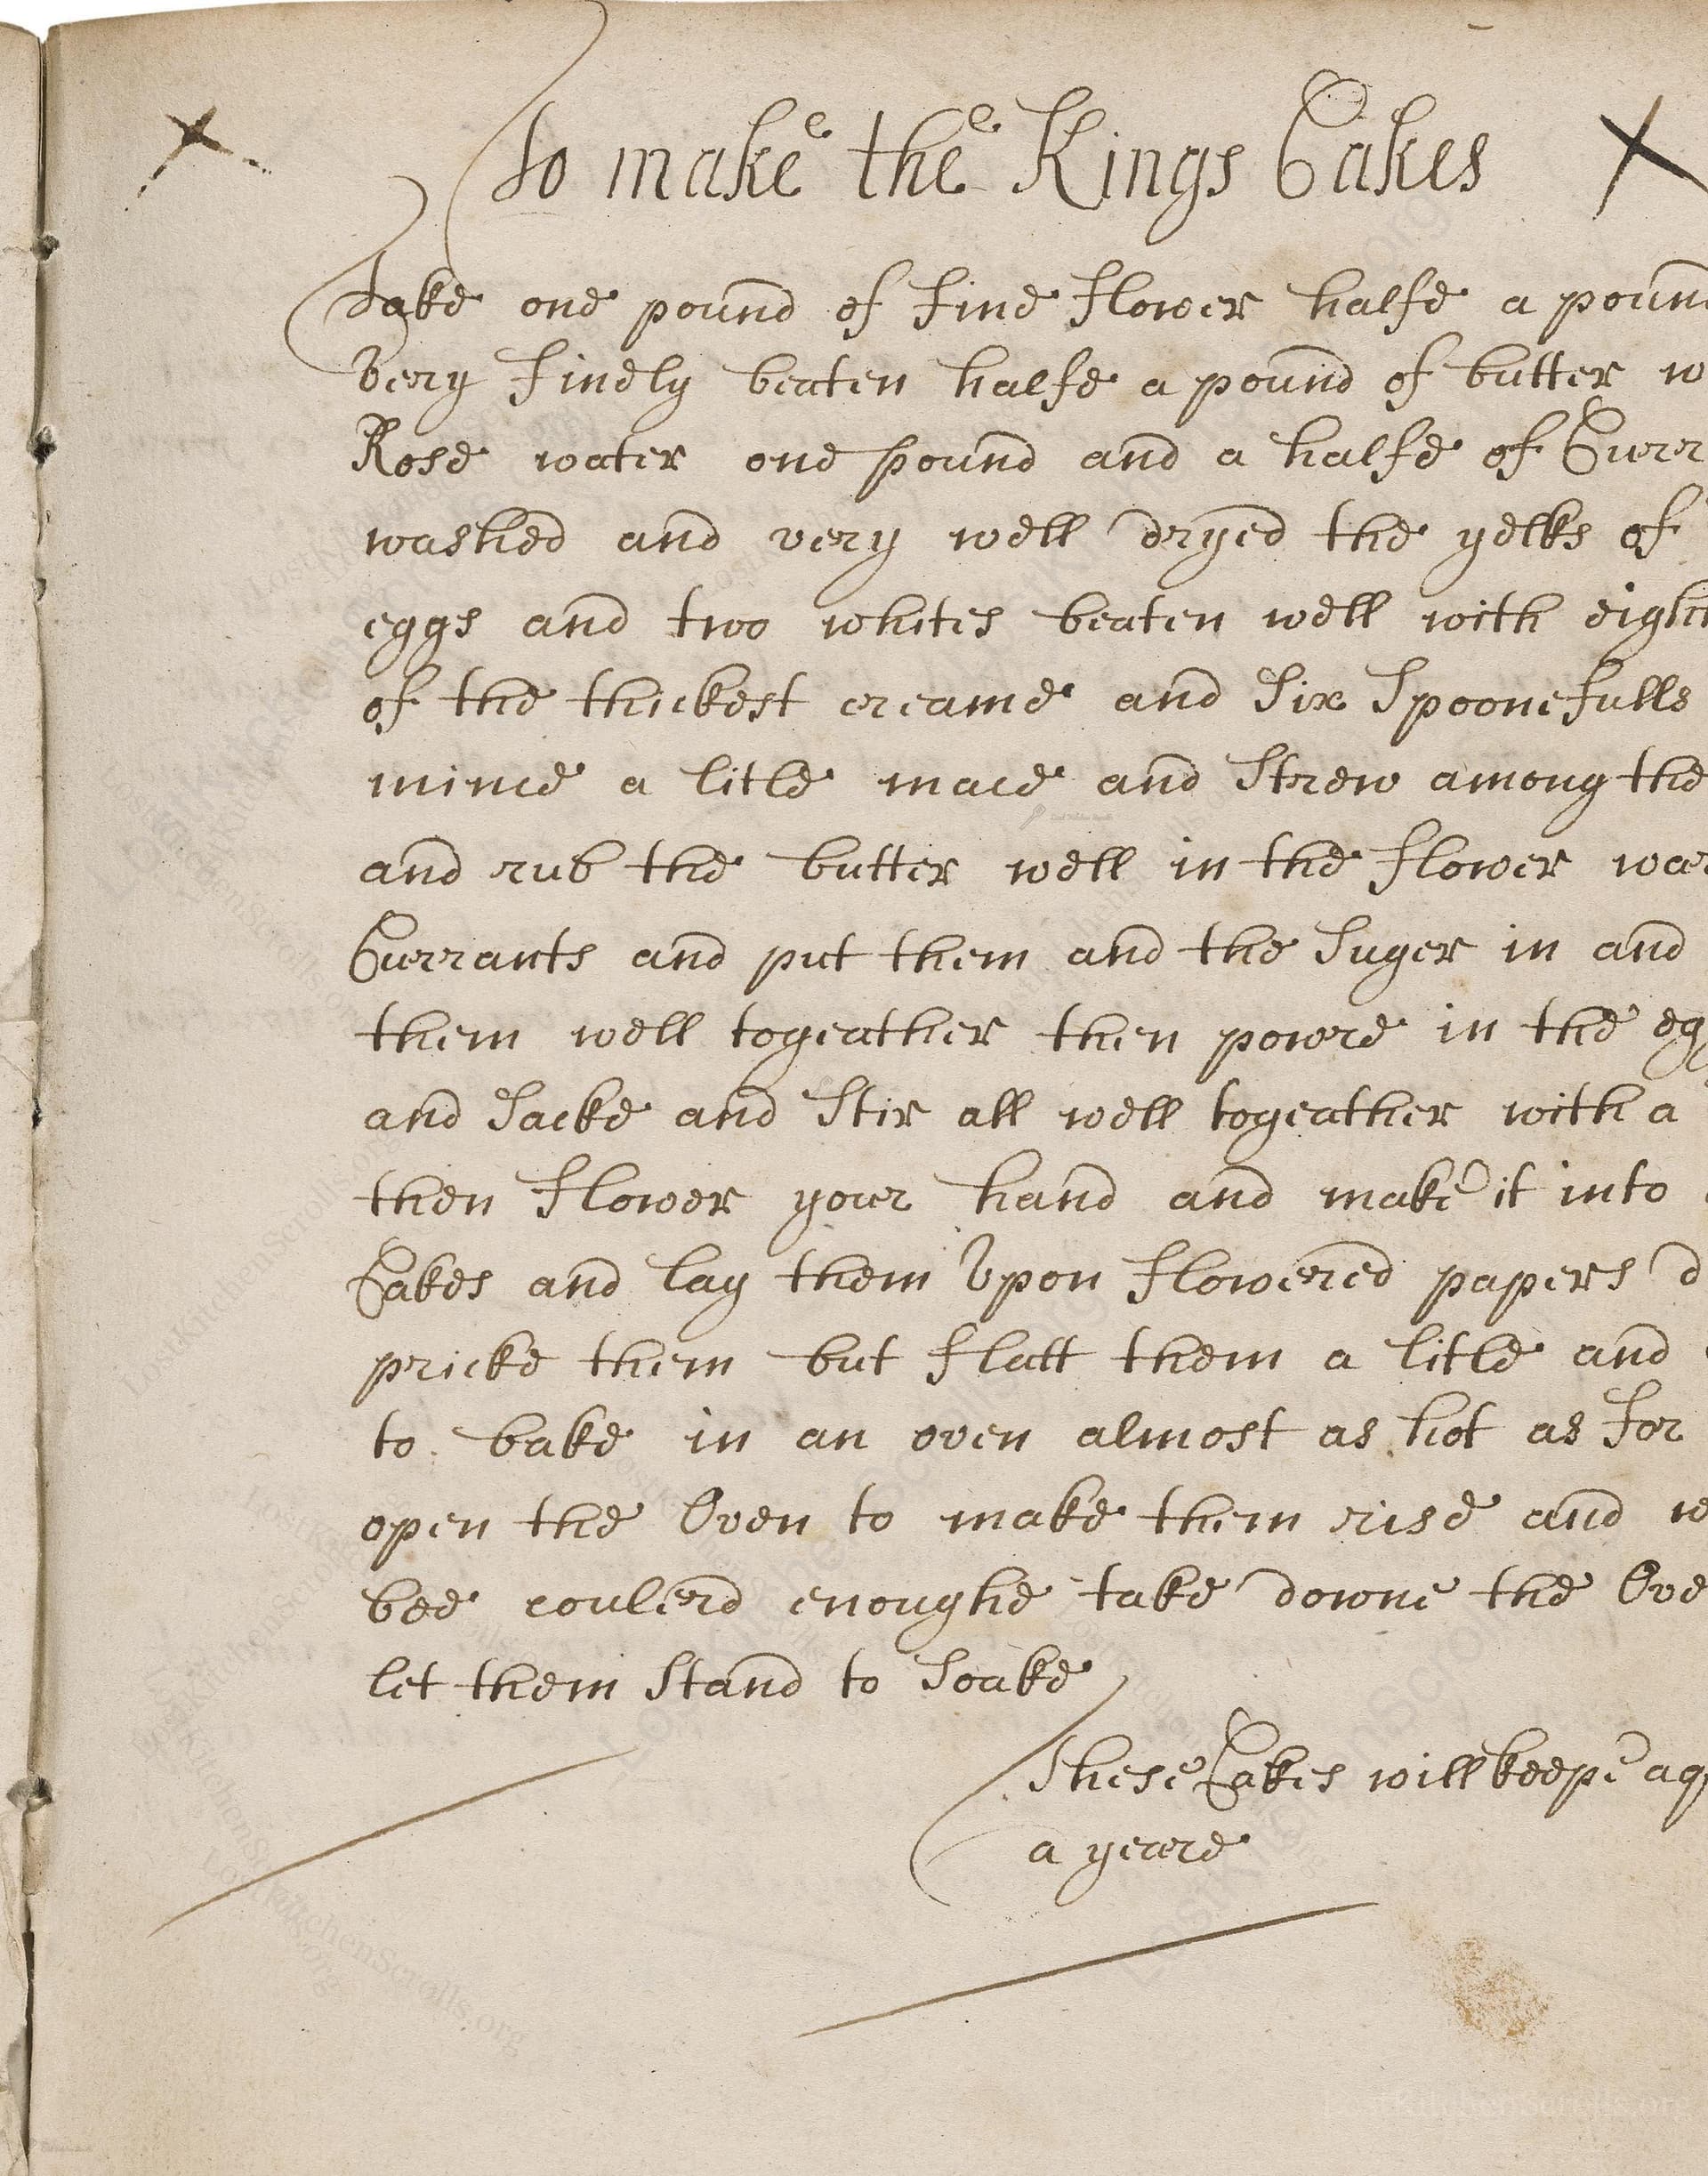 To make the Kings Cakes
Take one pound of fine flower halfe a poun
very finely beaten halfe a pound of butter w
Rose water one pound and a halfe of Curr
washed and very well dryed the yelks of
eggs and two whites beaten well with eight
of the thickest creame and Six Spoonefulls
mince a litle mace and Strew among the
and rub the butter well in the flower war
Currants and put them and the Suger in and
them well togeather then powre in the egg
and Sacke and Stir all well togeather with a
then flower your hand and make it into
Cakes and lay them Upon flowered papers d
pricke them but flatt them a litle and
to bake in an oven almost as hot as for
open the Oven to make them rise and w
bee coulerd enoughe take downe the Ove
let them Stand to Soake
These Cakes will keepe aq
a yeare
LostKitchenScrolls.org